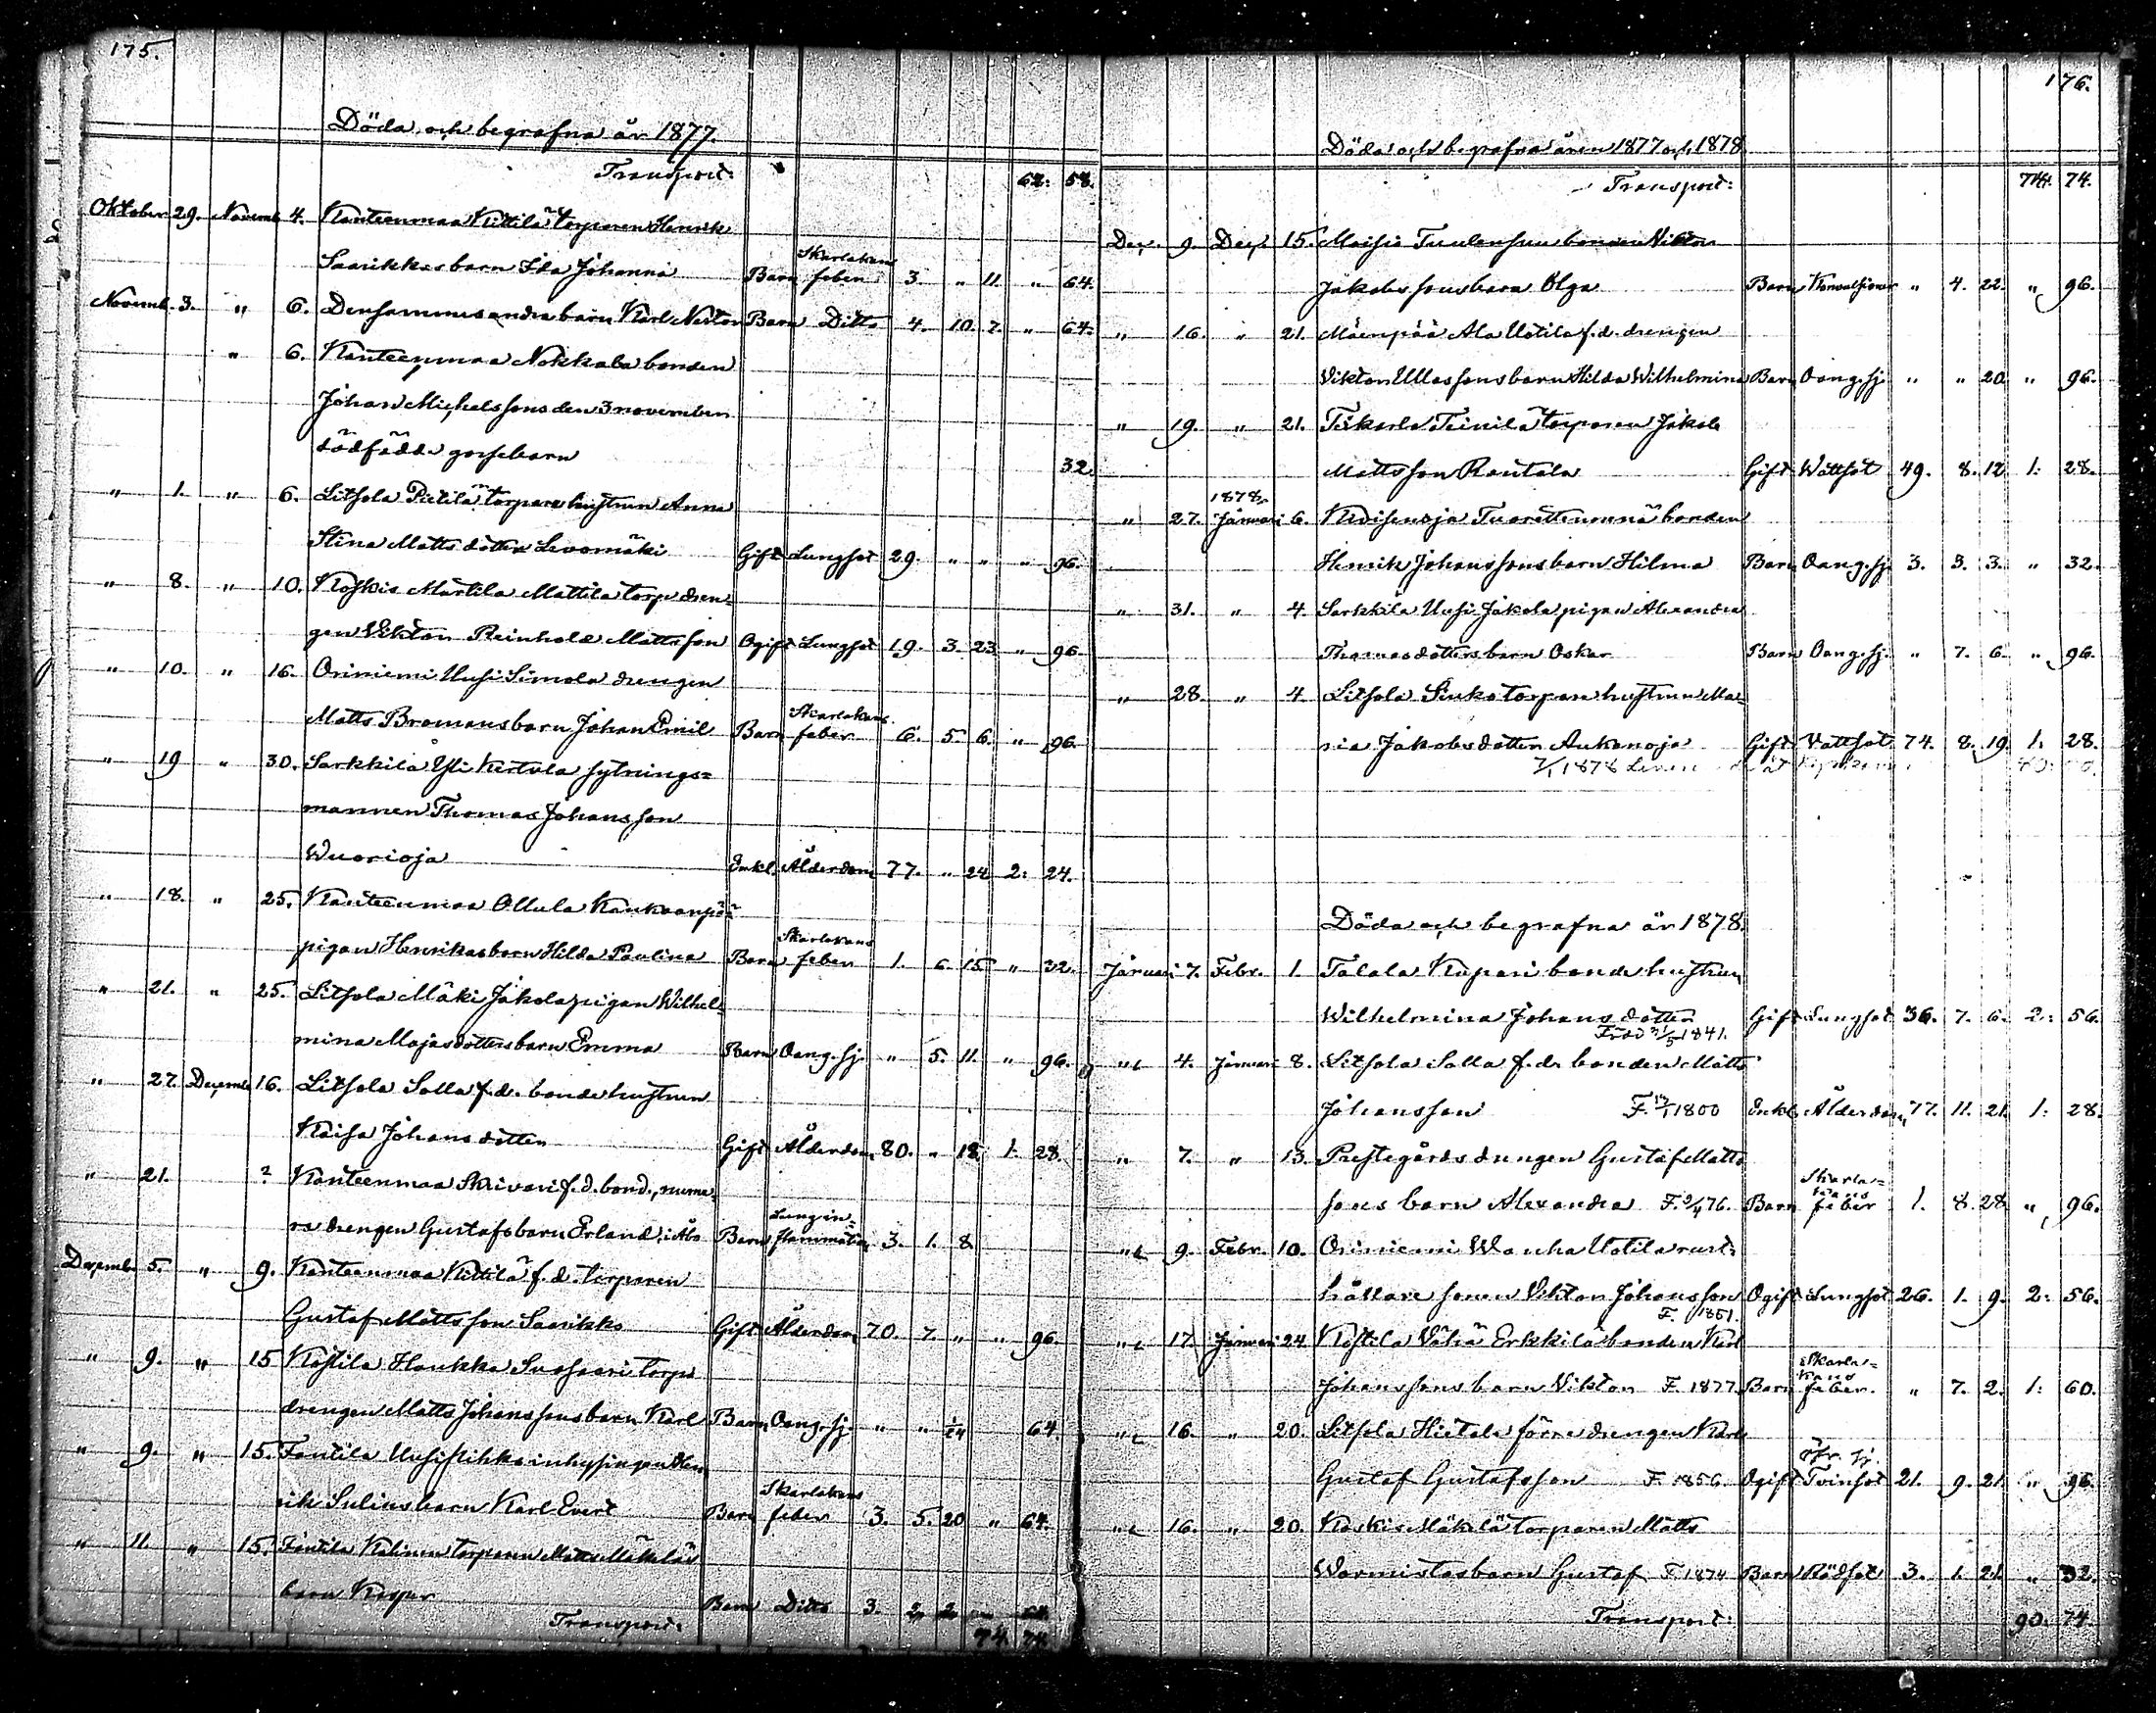 175.
Döda och begrafna år 1877.
Transport: 62: 58.
Oktober 29. Novemb. 4. Kanteenmaa Kittilä torparen Henrik
Saarikkas barn Ida Johanna Barn Skarlakans feber 3. „ 11. „ 64.
Novemb. 3. „ 6. Densammes andra barn Karl Nestor Barn Ditto 4. 10. 7. „ 64.
„ 6. Kanteenmaa Nokkala bonden
Johan Michelssons den 3 november
dödfödde gossebarn 32.
„ 1. „ 6. Litsola Pietilä torpare hustrun Anna
Stina Matts dotter Levomäki Gift Lungsot 29. „ „ „ 96.
„ 8. „ 10. Koskis Martila Mattila torp dren-
gen Viktor Reinhold Mattsson Ogift Lungsot 19. 3. 23. „ 96.
„ 10. „ 16. Oriniemi Uusi Simola drengen
Matts Bromans barn Johan Emil Barn Skarlakans feber 6. 5. 6. „ 96.
„ 19 „ 30. Sarkkila Yli Kertola sytnings-
mannen Thomas Johansson
Wuorioja Enkl. Ålderdom 77. „ 24 2: 24.
„ 18. „ 25. Kanteenmaa Ollula Kankaanpää
pigan Henrikas barn Hilda Paulina Barn Skarlakans feber 1. 6. 15 „ 32.
„ 21. „ 25. Litsola Mäki Jakola pigan Wilhel-
mina Majasdotters barn Emma Barn Oang. sj. „ 5. 11. „ 96.
„ 27. Decemb. 16. Litsola Salla f.d. bonde hustrun
Kaisa Johans dotter Gift Ålderdom 80. „ 18. 1. 28.
„ 21. ? Kanteenmaa Skrivari f.d. bond., numera
drengen Gustafs barn Erland, i Åbo Barn Lungin- flammation 3. 1. 8.
Decemb. 5. „ 9. Kanteenmaa Kittilä f.d. torparen
Gustaf Mattsson Saarikko Gift Ålderdom 70. 7. „ „ 96.
„ 9. „ 15 Kostila Haukka torp
drengen Matts Johanssons barn Karl Barn Oang. sj. „ „ 1/24 64.
„ 9. „ 15. Fantila inhysingen Hen
rik barn Karl Evert Barn Skarlakans feber 3. 5. 20 „ 64.
„ 11. „ 15. torparen Matts Mäkeläs
barn Kasper Barn Ditto 3. 2. 2.
Transport: 74. 74.
176.
Döda och begrafna åren 1877 och 1878
Transport: 74. 74.
Dec. 9. Dec. 15. Moisio Tuulensuu bonden Viktor
Jakobssons barn Olga Barn Konvulsioner „ 4. 22. „ 96.
„ 16. „ 21. Mäenpää Ala Uotila f.d. drengen
Viktor Ullassons barn Hilda Wilhelmina Barn Oang. sj. „ „ 20 „ 96.
„ 19. „ 21. Tiskarla Teinilä torparen Jakob
Mattsson Rautala Gift Wattsot 49. 8. 12 1: 28.
1878.
„ 27. Januari 6. bonden
Henrik Johanssons barn Hilma Barn Oang. sj. 3. 3. 3. „ 32.
„ 31. „ 4 Sarkkila Uusi Jakola pigan Alexandra
Thomasdotters barn Oskar Barn Oang. sj. „ 7. 6. „ 96.
„ 28. „ 4 Litsola Sinko torpare hustrun Ma-
ria Jakobs dotter Aukeanoja Gift Vattsot 74. 8. 19. 1. 28.
7/1 1878
Döda och begrafna år 1878.
Januari 7. Febr. 1. Talala Kupari bonde hustrun
Wilhelmina Johans dotter Gift Lungsot 36. 7. 6. 2: 56.
Född 31/5 1841.
„ 4. Januari 8. Litsola Salla f.d. bonden Matts
Johansson F. 1800 Enkl. Ålderdom 77. 11. 21. 1: 28.
„ 7. „ 13. Prestegårds drengen Gustaf Matts
sons barn Alexandra F. 9/4 76. Barn Skarla- kans feber 1. 8. 28 „ 96.
„ 9. Febr. 10. Oriniemi Wanha Uotila rust-
hållare sonen Viktor Johansson Ogift Lungsot 26. 1. 9. 2: 56.
F. 1851.
„ 17. Januari 24 Kostila Vähä Erkkilä bonden Karl
Johanssons barn Viktor F. 1877. Barn Skarla- kans feber. „ 7. 2. 1: 60.
„ 16. „ 20. Litsola Hietala förre drengen Karl
Gustaf Gustafsson F. 1856. Ogift öfr. sj. Tvinsot 21. 9. 21. „ 96.
„ 16. „ 20. Koskis Mäkilä torparen Matts
Warmistas barn Gustaf F. 1874 Barn Rödsot 3. 1. 21. „ 32.
Transport: 90. 74.